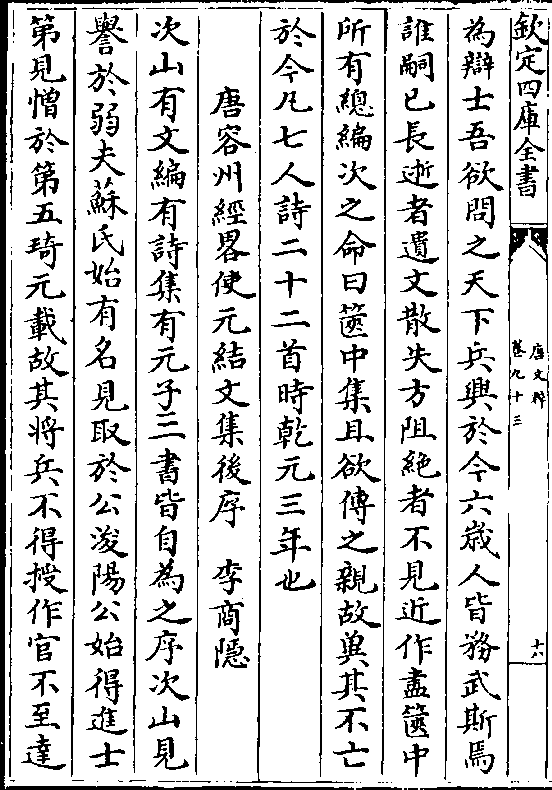 欽定四庫全書
唐文粹
卷九十三
十六
為辯士吾欲問之天下兵興於今六歲人皆務武斯焉
誰嗣已長逝者遺文散失方阻絕者不見近作盡篋中
所有總編次之命曰篋中集且欲傳之親故冀其不亡
於今凡七人詩二十二首時乾元三年也
唐容州經畧使元結文集後序　李商隱
次山有文編有詩集有元子三書皆自為之序次山見
譽於弱夫蘇氏始有名見取於公浚陽公始得進士
第見憎於第五琦元載故其將兵不得授作官不至達